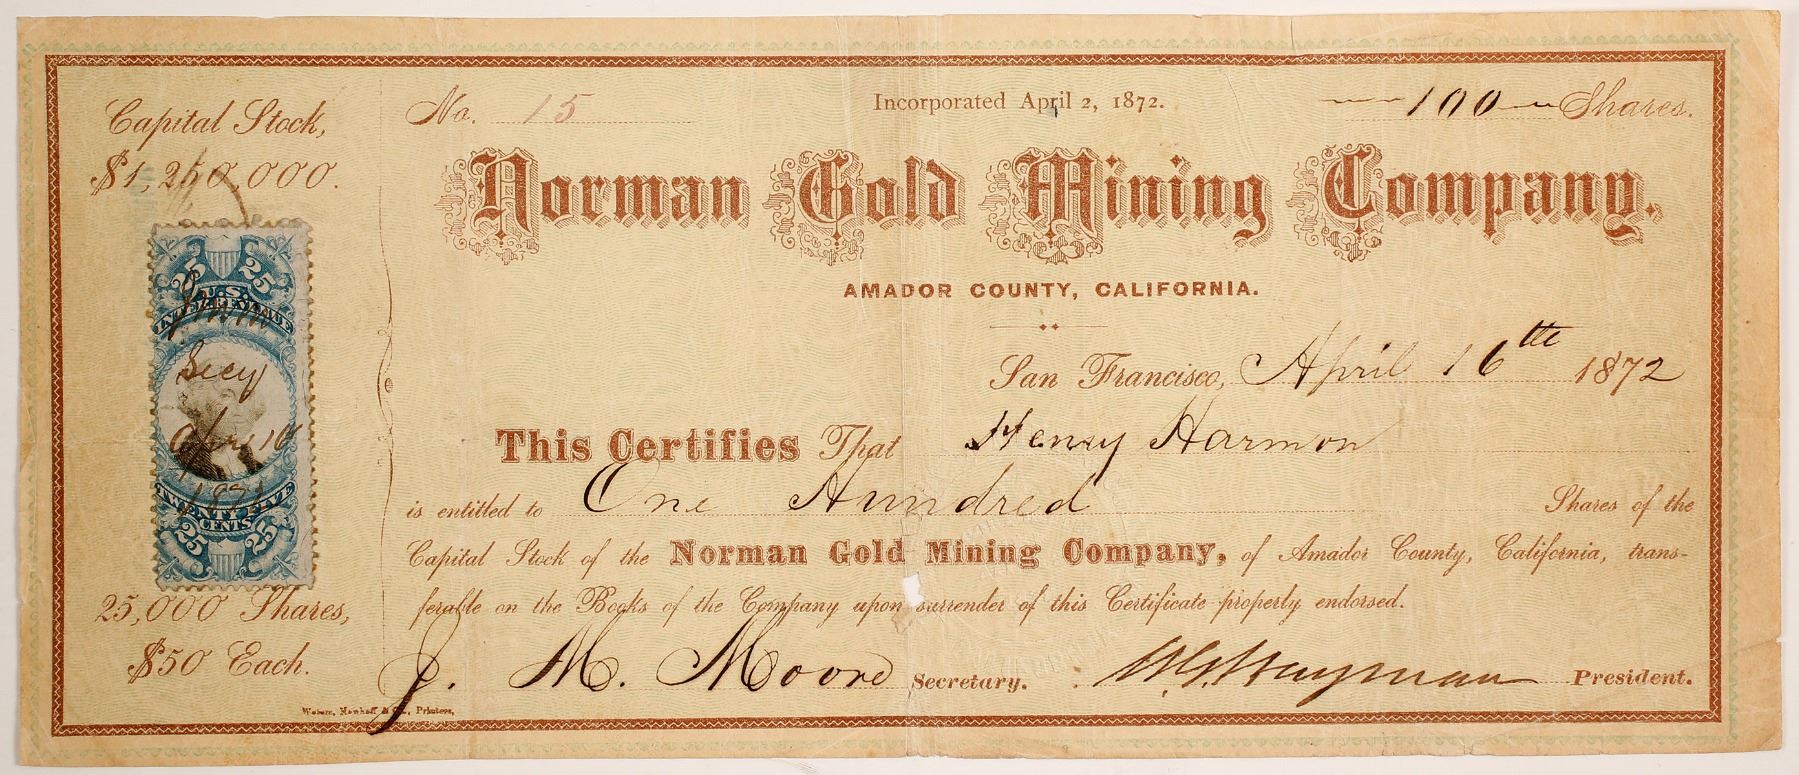 Capital Stock,
$1,250,000.
No. 15
Incorporated April 2, 1872.
100 Shares.
Norman Gold Mining Company.
AMADOR COUNTY, CALIFORNIA.
San Francisco, April 16th 1872
This Certifies That Henry Harmon
is entitled to One Hundred Shares of the
Capital Stock of the Norman Gold Mining Company, of Amador County, California, trans-
ferable on the Books of the Company upon surrender of this Certificate properly endorsed.
J. M. Moore Secretary. President.
25 25
U.S.
INTER. REVENUE
JMM
Secy
Apr 16
TWENTY FIVE
CENTS
25 25
25,000 Shares,
$50 Each.
Printers,